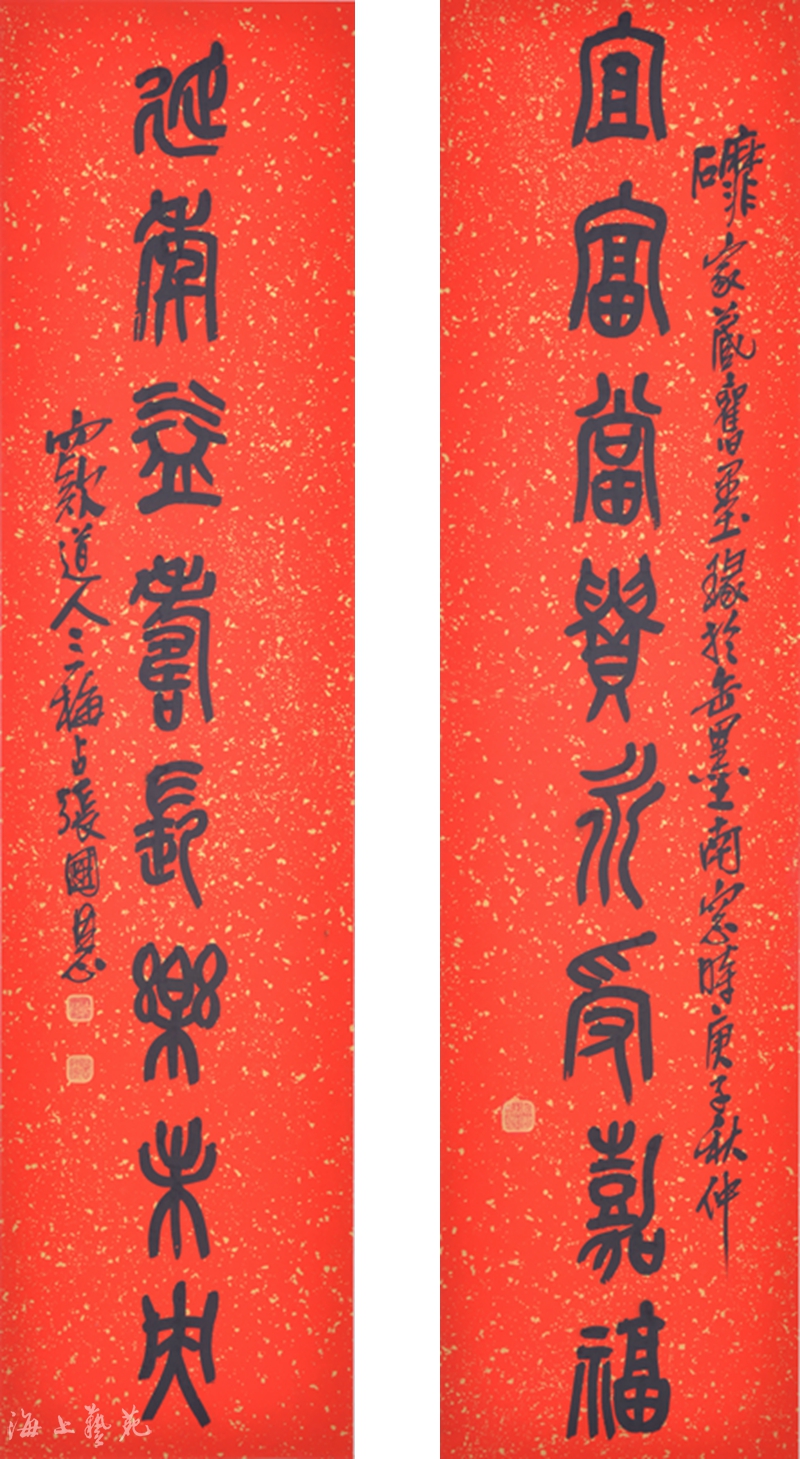 䃺家藏舊墨於缶墨南窗時庚子秋仲
宜富當貴永受嘉福
延年益壽長樂未央
道人三梅占張國恩
海上藝苑